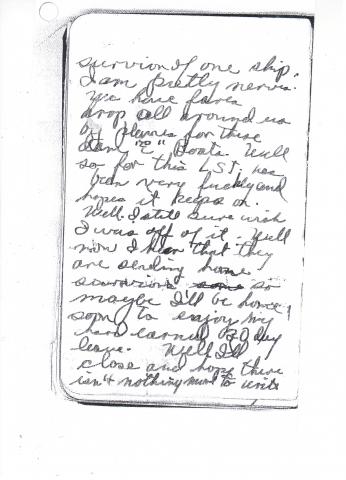 survion of one ship.
I am pretty nervs.
We have fares
drop all around us
by planes for these
dam "E" Boats. Well
so for this LST. has
been very luckly and
hopes it keeps on.
Well. I still sure wish
I was off of it. Well
now I hear that they
are sending home
survivors some so
maybe I'll be home
soon to enjoy my
hard earned 30 day
leave. Well I'll
close and hope there
isn't nothing more to write